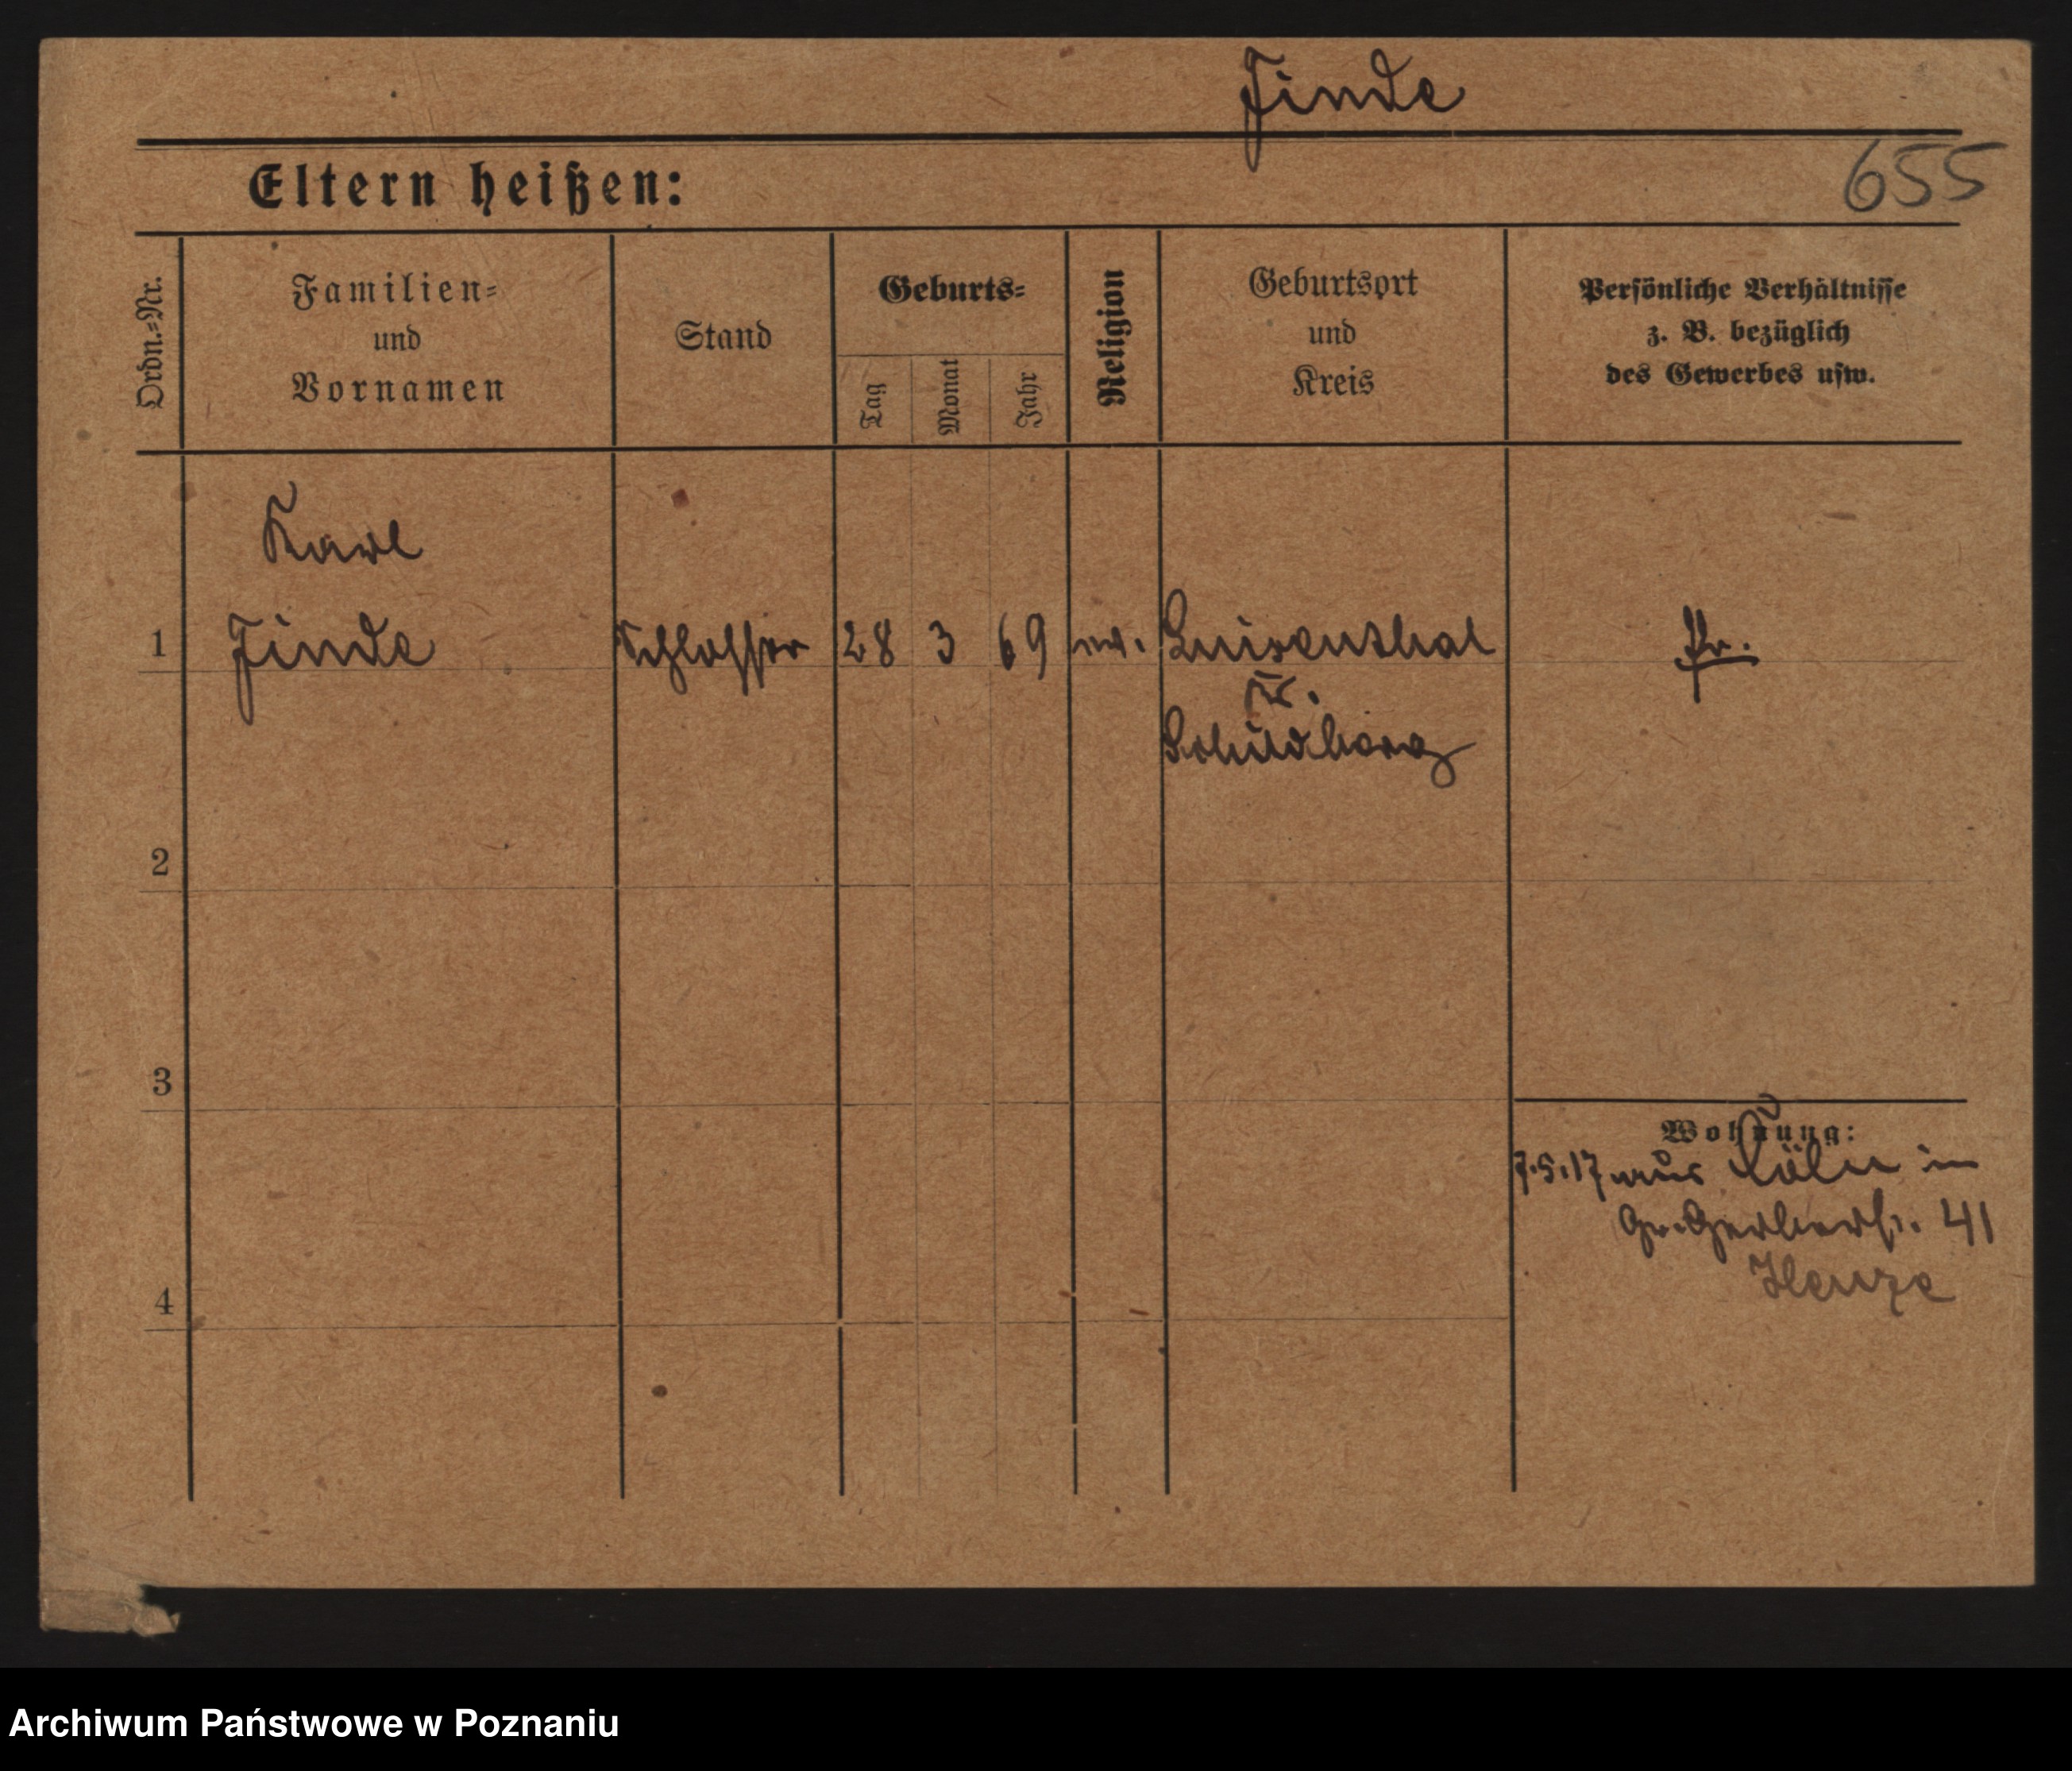 Jinde
655
Eltern heißen:
Ordn.=Nr.
Familien=
und
Vornamen
Stand
Geburts=
Tag
Monat
Jahr
Religion
Geburtsort
und
Kreis
Persönliche Verhältnisse
z. B. bezüglich
des Gewerbes usw.
Karl
1 Jinde Schlosser 28 3 69 ev. Luisenthal Pr.
Kr.
Schildberg
2
3
Wohnung:
7.5.17 aus Köln in
Gr. Gerberstr. 41
Henze
4
Archiwum Państwowe w Poznaniu